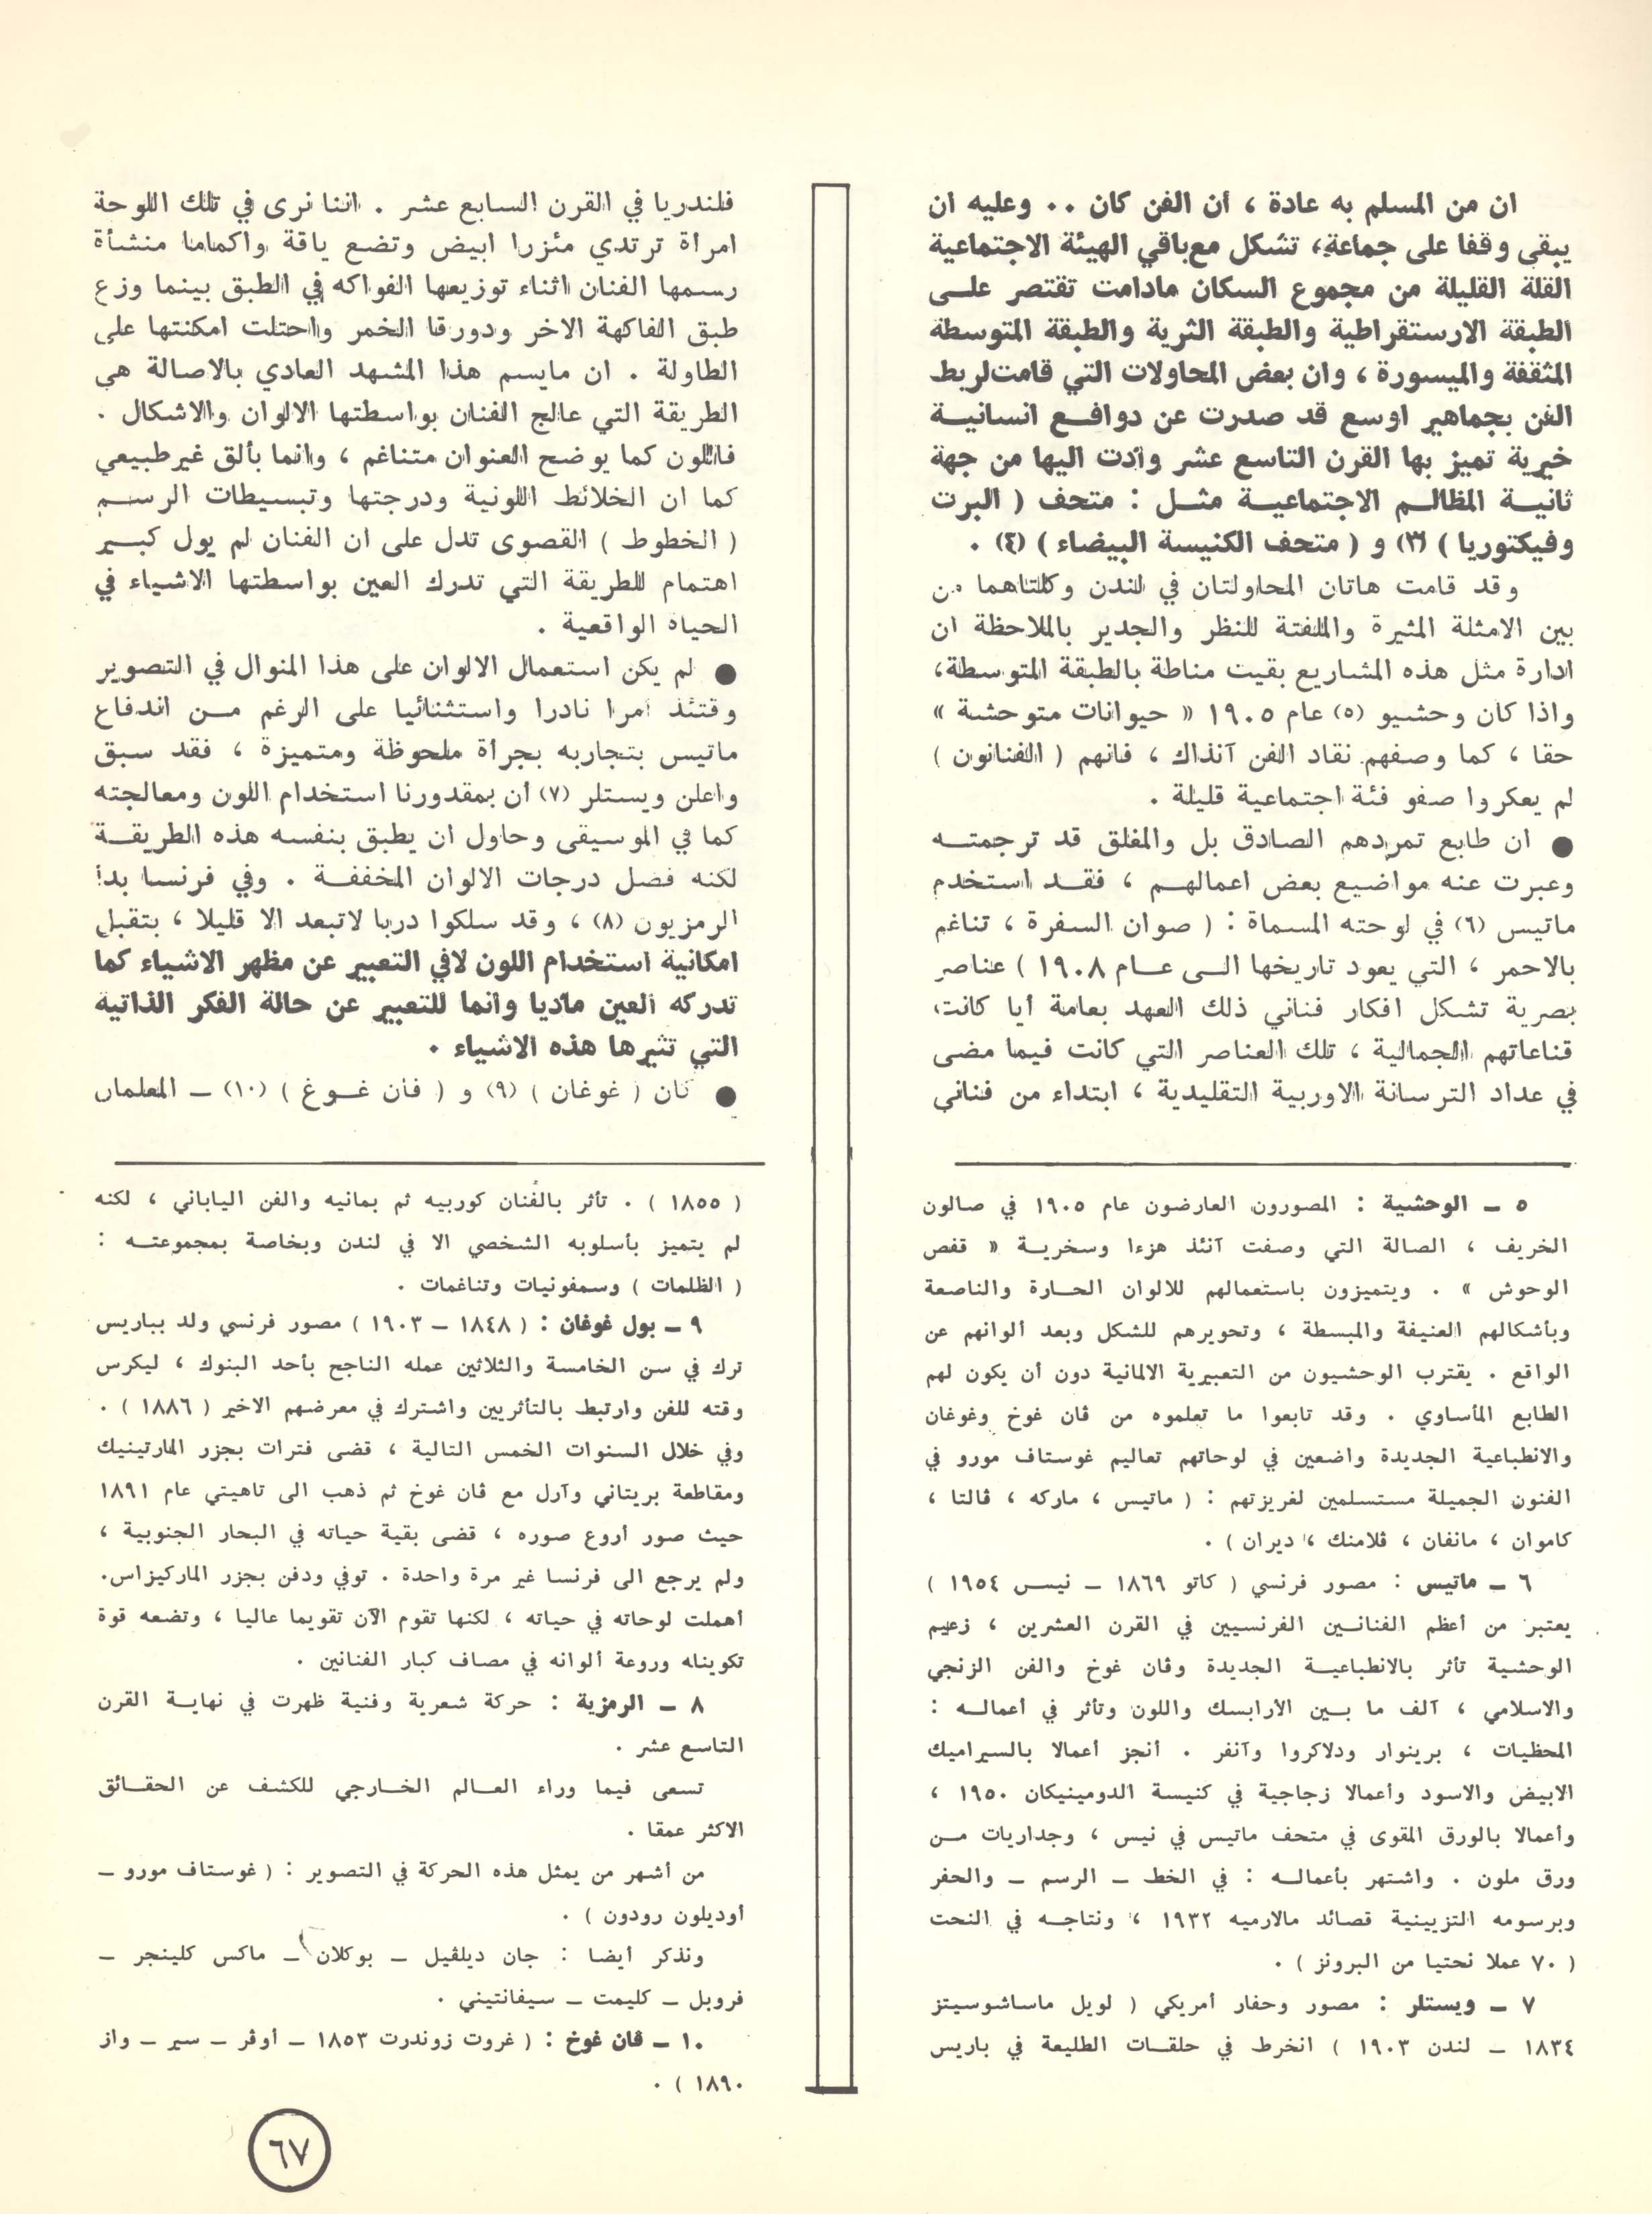 ان من المسلم به عادة ، أن الفن كان ٠٠ وعليه ان
يبقى وقفا على جماعة، تشكل مع باقي الهيئة الاجتماعية
القلة القليلة من مجموع السكان مادامت تقتصر علـى
الطبقة الارستقراطية والطبقة الثرية والطبقة المتوسطة
المثقفة والميسورة ، وان بعض المحاولات التي قامت لربط
الفن بجماهير اوسع قد صدرت عن دوافـع انسانيـة
خيرية تميز بها القرن التاسع عشر وأدت اليها من جهة
ثانيـة المظالـم الاجتماعيـة مثـل : متحف ( البرت
وفيكتوريا ) (٣) و ( متحف الكنيسة البيضاء ) (٤) ٠
وقد قامت هاتان المحاولتان في لندن وكلتاهما من
بين الامثلة المثيرة والملفتة للنظر والجدير بالملاحظة ان
ادارة مثل هذه المشاريع بقيت مناطة بالطبقة المتوسطة،
واذا كان وحشيو (٥) عام ١٩٠٥ « حيوانات متوحشة »
حقا ، كما وصفهم نقاد الفن آنذاك ، فانهم ( الفنانون )
لم يعكروا صفو فئة اجتماعية قليلة ٠
● ان طابع تمردهم الصادق بل والمغلق قد ترجمتـه
وعبرت عنه مواضيع بعض اعمالهـم ، فقـد استخدم
ماتيس (٦) في لوحته المسماة : ( صوان السفرة ، تناغم
بالاحمر ، التي يعود تاريخها الـى عـام ١٩٠٨ ) عناصر
بصرية تشكل افكار فناني ذلك العهد بعامة أيا كانت،
قناعاتهم الجمالية ، تلك العناصر التي كانت فيما مضى
في عداد الترسانة الاوربية التقليدية ، ابتداء من فناني
فلندريا في القرن السابع عشر ٠ اننا نرى في تلك اللوحة
امرأة ترتدي مئزرا ابيض وتضع ياقة واكماما منشأة
رسمها الفنان اثناء توزيعها الفواكه في الطبق بينما وزع
طبق الفاكهة الاخر ودورقا الخمر واحتلت امكنتها على
الطاولة ٠ ان مايسم هذا المشهد العادي بالاصالة هي
الطريقة التي عالج الفنان بواسطتها الالوان والاشكال ٠
فاللون كما يوضح العنوان متناغم ، وانما بألق غير طبيعي
كما ان الخلائط اللونية ودرجتها وتبسيطات الرسـم
( الخطوط ) القصوى تدل على ان الفنان لم يول كبـير
اهتمام للطريقة التي تدرك العين بواسطتها الاشياء في
الحياة الواقعية ٠
● لم يكن استعمال الالوان على هذا المنوال في التصوير
وقتئذ أمرا نادرا واستثنائيا على الرغم مـن اندفاع
ماتيس بتجاربه بجرأة ملحوظة ومتميزة ، فقد سبق
واعلن ويستلر (٧) أن بمقدورنا استخدام اللون ومعالجته
كما في الموسيقى وحاول ان يطبق بنفسه هذه الطريقـة
لكنه فضل درجات الالوان المخففة ٠ وفي فرنسا بدأ
الرمزيون (٨) ، وقد سلكوا دربا لاتبعد الا قليلا ، بتقبل
امكانية استخدام اللون لافي التعبير عن مظهر الاشياء كما
تدركه العين ماديا وانما للتعبير عن حالة الفكر الذاتية
التي تثيرها هذه الاشياء ٠
● كان ( غوغان ) (٩) و ( فان غـوغ ) (١٠) ـ المعلمان
٥ ـ الوحشية : المصورون العارضون عام ١٩٠٥ في صالون
الخريف ، الصالة التي وصفت آنئذ هزءا وسخريـة « قفص
الوحوش » ٠ ويتميزون باستعمالهم للالوان الحـارة والناصعة
وبأشكالهم العنيفة والمبسطة ، وتحويرهم للشكل وبعد ألوانهم عن
الواقع ٠ يقترب الوحشيون من التعبيرية الالمانية دون أن يكون لهم
الطابع المأساوي ٠ وقد تابعوا ما تعلموه من ڤان غوخ وغوغان
والانطباعية الجديدة واضعين في لوحاتهم تعاليم غوستاف مورو في
الفنون الجميلة مستسلمين لغريزتهم : ( ماتيس ، ماركه ، ڤالتا ،
كاموان ، مانغان ، ڤلامنك ، ديران ) ٠
٦ ـ ماتيس : مصور فرنسي ( كاتو ١٨٦٩ ـ نيس ١٩٥٤ )
يعتبر من أعظم الفنانـين الفرنسيين في القرن العشرين ، زعيم
الوحشية تأثر بالانطباعيـة الجديدة وڤان غوخ والفن الزنجي
والاسلامي ، آلف ما بـين الأرابسك واللون وتأثر في أعمالـه :
المحظيات ، برينوار ودلاكروا وآنغر ٠ أنجز أعمالا بالسيراميك
الابيض والاسود وأعمالا زجاجية في كنيسة الدومينيكان ١٩٥٠ ،
وأعمالا بالورق المقوى في متحف ماتيس في نيس ، وجداريات مـن
ورق ملون ٠ واشتهر بأعمالـه : في الخط ـ الرسم ـ والحفر
وبرسومه التزيينية قصائد مالارميه ١٩٣٢ ، ونتاجـه في النحت
( ٧٠ عملا نحتيا من البرونز ) ٠
٧ ـ ويستلر : مصور وحفار أمريكي ( لويل ماساشوسيتز
١٨٣٤ ـ لندن ١٩٠٣ ) انخرط في حلقـات الطليعة في باريس
( ١٨٥٥ ) ٠ تأثر بالفنان كوربيه ثم بمانيه والفن الياباني ، لكنه
لم يتميز بأسلوبه الشخصي الا في لندن وبخاصة بمجموعتـه :
( الظلمات ) وسمفونيات وتناغمات ٠
٩ ـ بول غوغان : ( ١٨٤٨ ـ ١٩٠٣ ) مصور فرنسي ولد بباريس
ترك في سن الخامسة والثلاثين عمله الناجح بأحد البنوك ، ليكرس
وقته للفن وارتبط بالتأثريين واشترك في معرضهم الاخير ( ١٨٨٦ ) ٠
وفي خلال السنوات الخمس التالية ، قضى فترات بجزر المارتينيك
ومقاطعة بريتاني وآرل مع ڤان غوخ ثم ذهب الى تاهيتي عام ١٨٩١
حيث صور أروع صوره ، قضى بقية حياته في البحار الجنوبية ،
ولم يرجع الى فرنسا غير مرة واحدة ٠ توفي ودفن بجزر الماركيزاس٠
أهملت لوحاته في حياته ، لكنها تقوم الآن تقويما عاليا ، وتضعه قوة
تكويناته وروعة ألوانه في مصاف كبار الفنانين ٠
٨ ـ الرمزية : حركة شعرية وفنية ظهرت في نهايـة القرن
التاسع عشر ٠
تسعى فيما وراء العـالم الخـارجي للكشف عن الحقـائق
الاكثر عمقا ٠
من أشهر من يمثل هذه الحركة في التصوير : ( غوستاف مورو ـ
أوديلون رودون ) ٠
ونذكر أيضا : جان ديلڤيل ـ بوكلان ـ ماكس كلينجر ـ
فروبل ـ كليمت ـ سيغانتيني ٠
١٠ ـ ڤان غوخ : ( غروت زوندرت ١٨٥٣ ـ أوڤر ـ سير ـ واز
١٨٩٠ ) ٠
٦٧